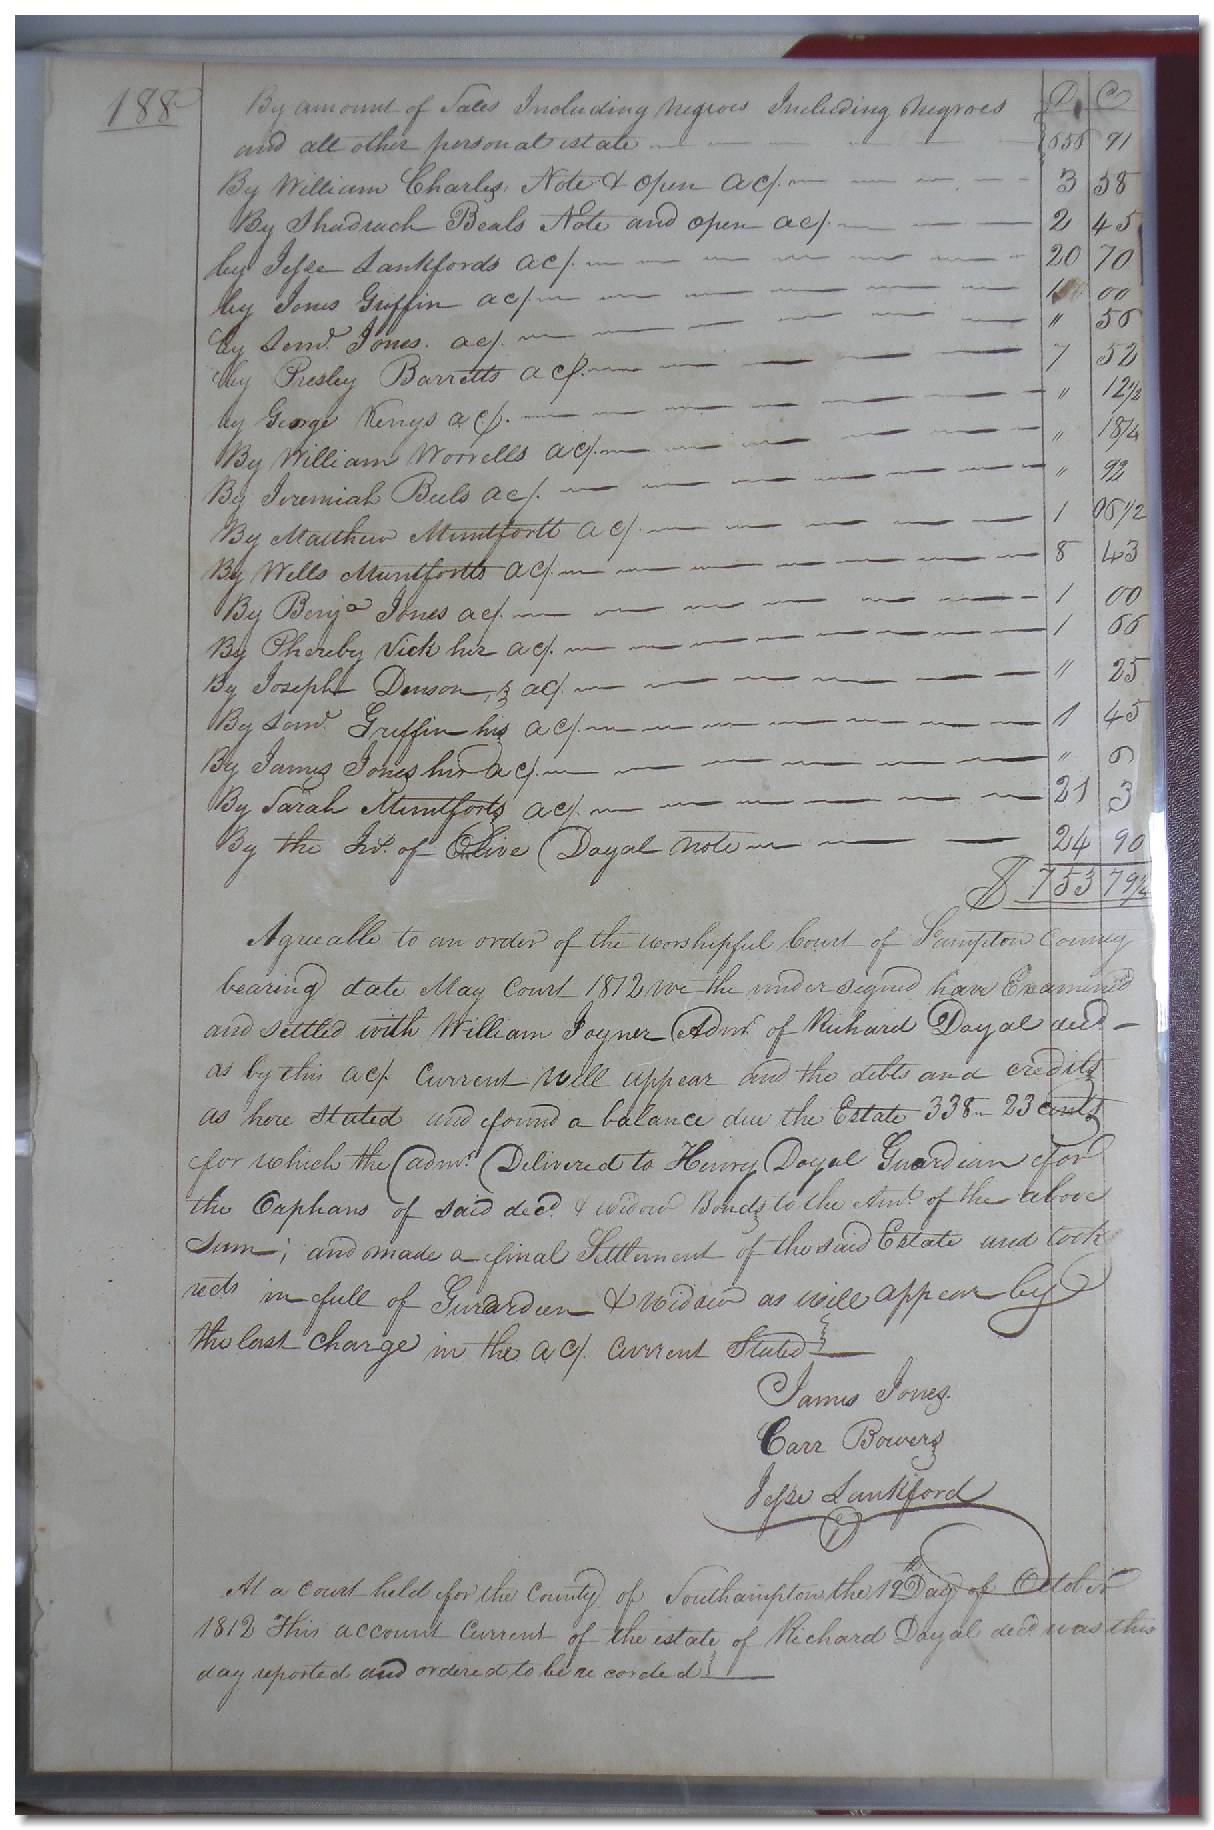 188
By amount of Sales Including negroes Including negroes D C
and all other personal estate 656 91
By William Charles Note & open ac/. 3 58
By Shadrach Beals Note and open ac/. 2 45
by Jesse Lankfords ac/. 20 70
by Jones Griffin ac/. 1 00
by Lemd. Jones. ac/. " 56
by Presley Barretts ac/. 7 52
by George Kerrys ac/. " 12 1/2
By William Worrells ac/. " 18 3/4
By Jeremiah Beels ac/. " 92
By Matthew Muntfortt ac/. 1 06 1/2
By Wells Muntfortts ac/. 8 43
By Benja Jones ac/. 1 00
By Phereby Vick her ac/. 1 66
By Joseph Denson, ac/. " 25
By Lemd. Griffin his ac/. 1 45
By James Jones his ac/. " 6
By Sarah Muntforts ac/. 21 3
By the Int. of Olive Doyal note 24 90
$ 753 79 3/4
Agreeable to an order of the worshipful Court of Sampton County
bearing date May Court 1812 we the under signed have Examined
and settled with William Joyner Admr. of Richard Doyal decd
as by this ac/. Current will appear and the debts and credits
as here stated and found a balance due the Estate 338 23 cents
for which the admr. Delivered to Henry Doyal Guardian for
the Orphans of said decd. & widow Bonds to the Amt. of the above
Sum; and made a final Settlement of the said Estate and took
rects in full of Gurardien & widdow as will appear by
the last charge in the ac/. Current Stated
James Jones.
Carr Bowers
Jesse Lankford
At a court held for the County of Southampton the 12th Day of October
1812 This account Current of the estate of Richard Doyal decd was this
day reported and ordered to be recorded